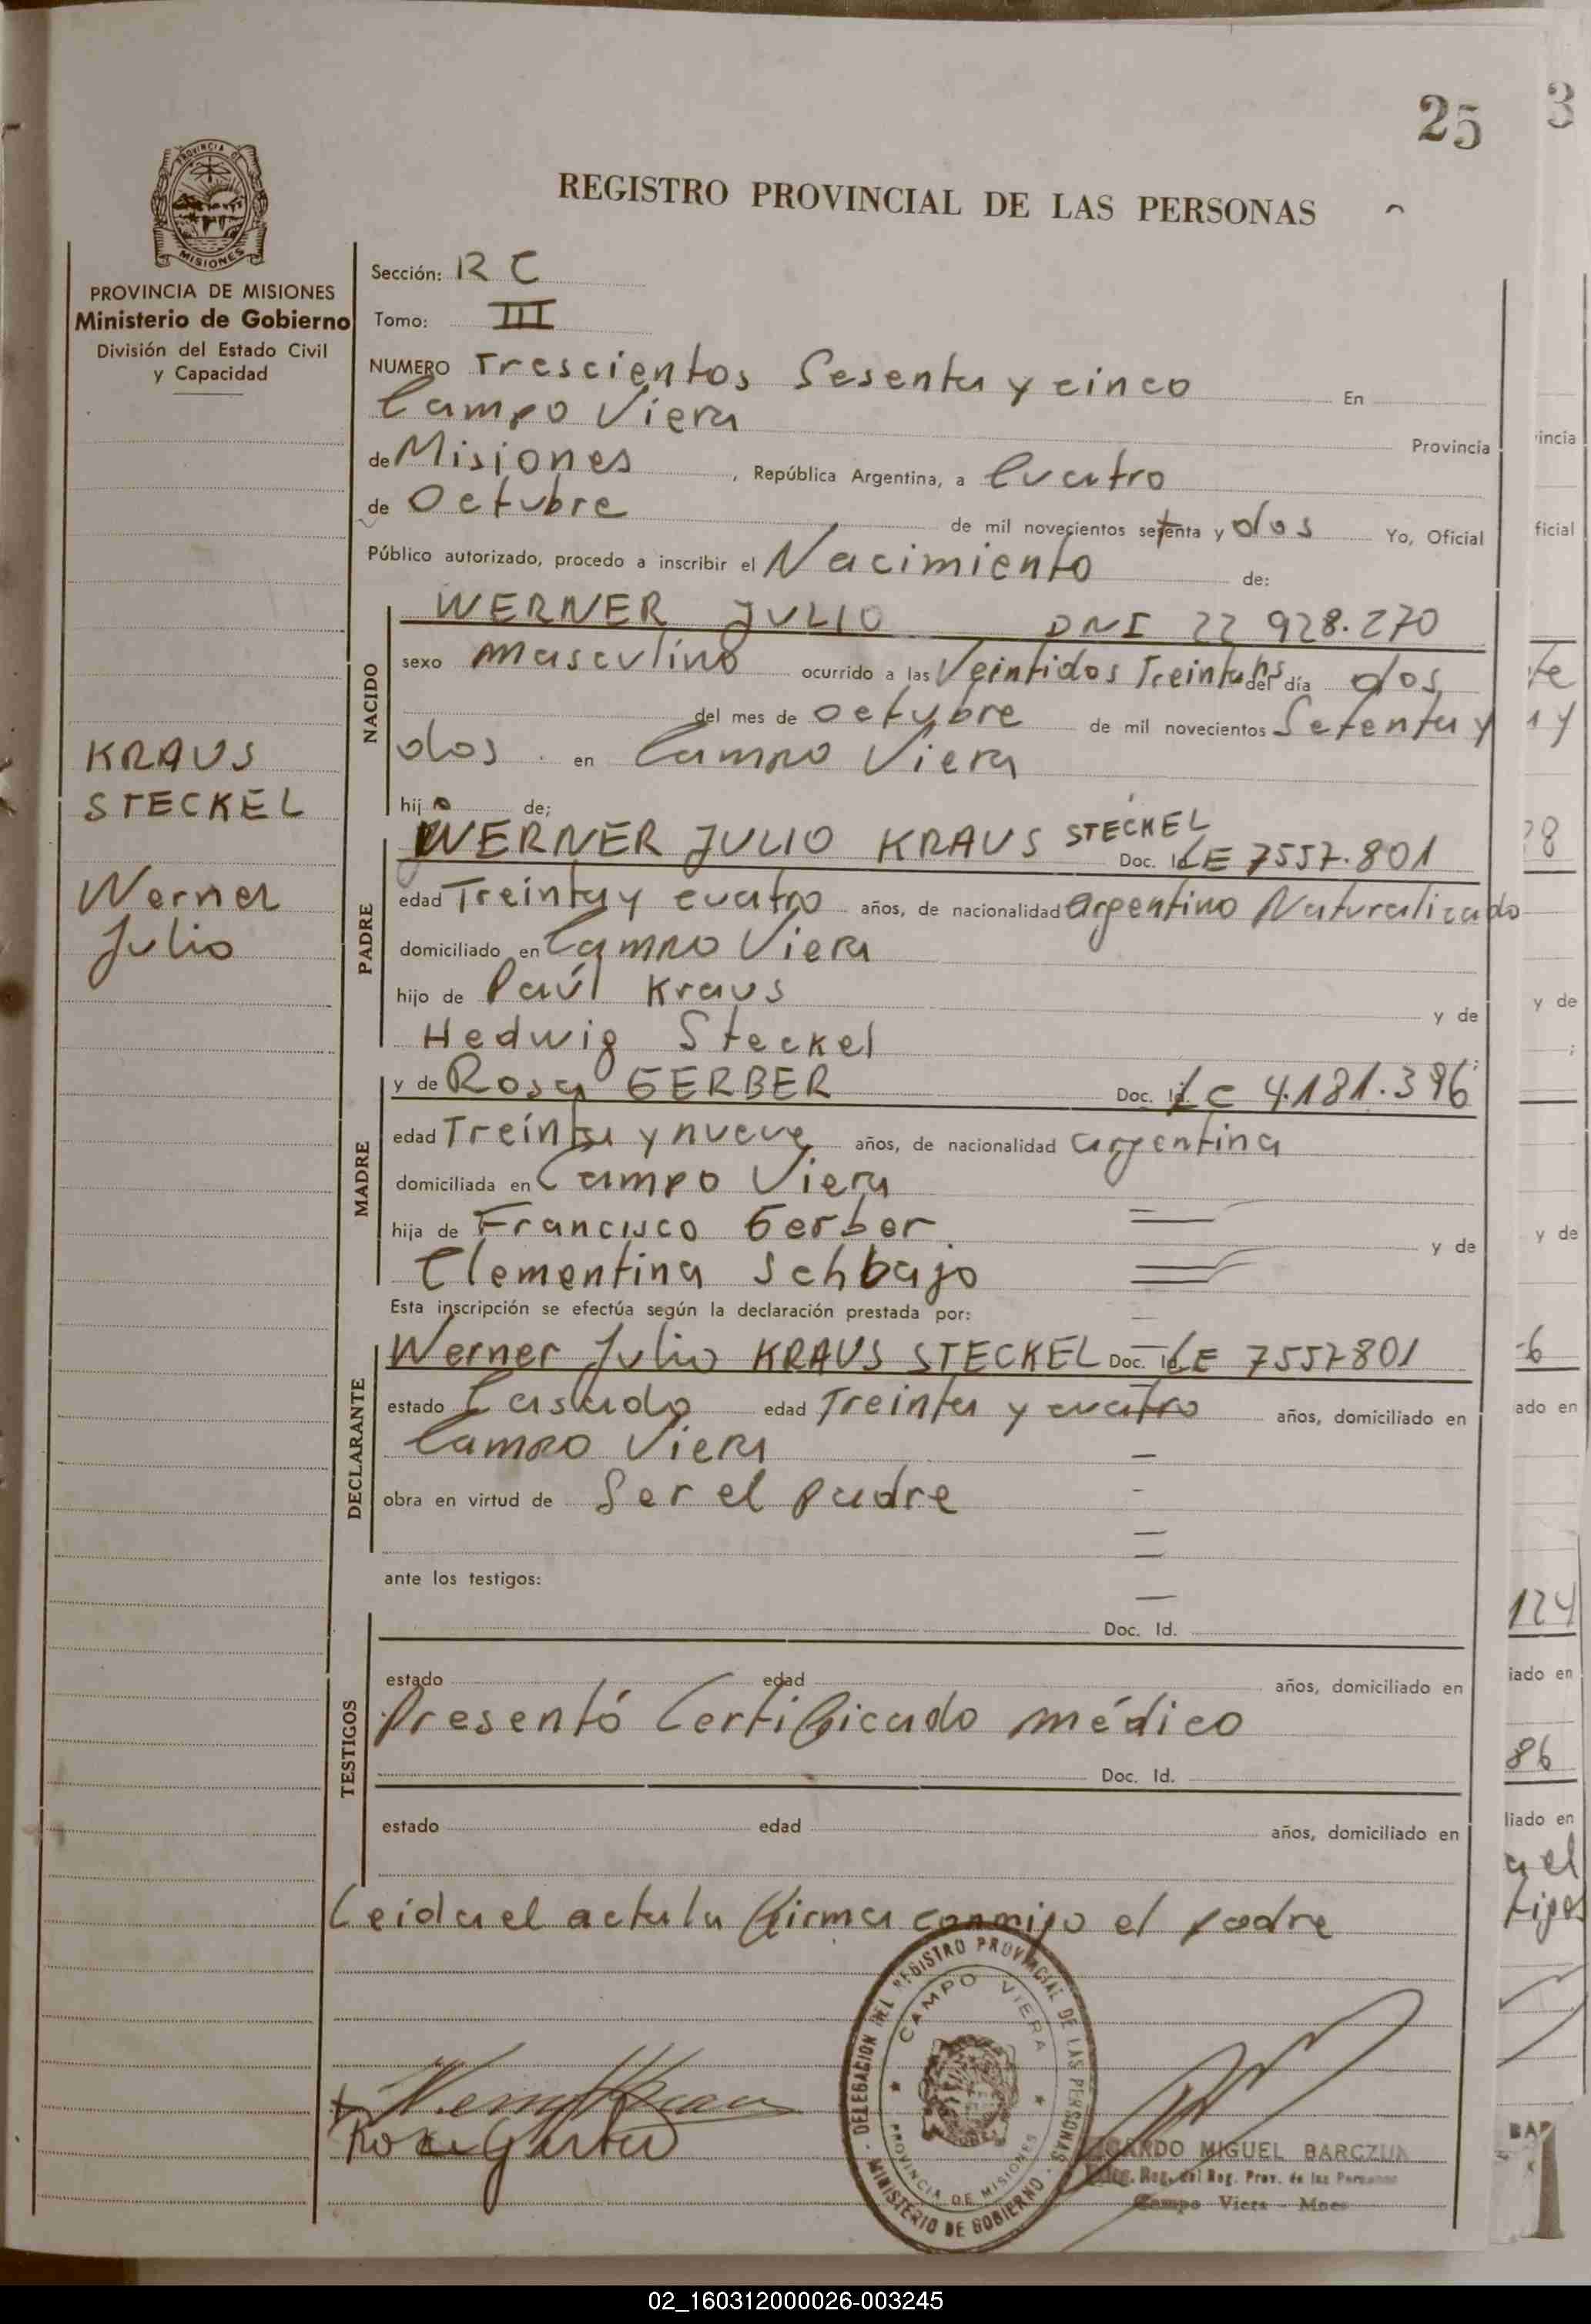 25
3
PROVINCIA DE
MISIONES
REGISTRO PROVINCIAL DE LAS PERSONAS
PROVINCIA DE MISIONES
Ministerio de Gobierno
División del Estado Civil
y Capacidad
KRAUS
STECKEL
Werner
Julio
Sección: R C
Tomo: III
NUMERO Trescientos Sesenta y cinco En
Campo Viera Provincia
de Misiones, República Argentina, a Cuatro
de Octubre de mil novecientos setenta y dos Yo, Oficial
Público autorizado, procedo a inscribir el Nacimiento de:
NACIDO
WERNER JULIO DNI 22 928.270
sexo masculino ocurrido a las Veintidos Treinta hs del día dos
del mes de octubre de mil novecientos Setenta y
dos. en Campo Viera
hijo de;
PADRE
WERNER JULIO KRAUS STECKEL Doc. Id. LE 7557.801
edad Treinta y cuatro años, de nacionalidad argentino Naturalizado
domiciliado en Campo Viera
hijo de Paúl Kraus y de
Hedwig Steckel
MADRE
y de Rosa GERBER Doc. Id. LC 4.181.396
edad Treinta y nueve años, de nacionalidad argentina
domiciliada en Campo Viera
hija de Francisco Gerber y de
Clementina Schbajo
Esta inscripción se efectúa según la declaración prestada por:
DECLARANTE
Werner Julio KRAUS STECKEL Doc. Id. LE 7557801
estado Casado edad Treinta y cuatro años, domiciliado en
Campo Viera
obra en virtud de Ser el padre
ante los testigos:
TESTIGOS
Doc. Id.
estado edad años, domiciliado en
Presentó Certificado médico
Doc. Id.
estado edad años, domiciliado en
Leida el acta la firma conmigo el padre
DELEGACION DEL REGISTRO PROVINCIAL DE LAS PERSONAS
MINISTERIO DE GOBIERNO
CAMPO VIERA
PROVINCIA DE MISIONES
Rosa Gerber
MIGUEL BARCZUK
Reg. del Reg. Prov. de las Personas
Campo Viera - Mnes
incia
ficial
te
y
28
y de
y de
-6
ado en
124
iado en
86
liado en
a el
tigos
BAR
02_160312000026-003245